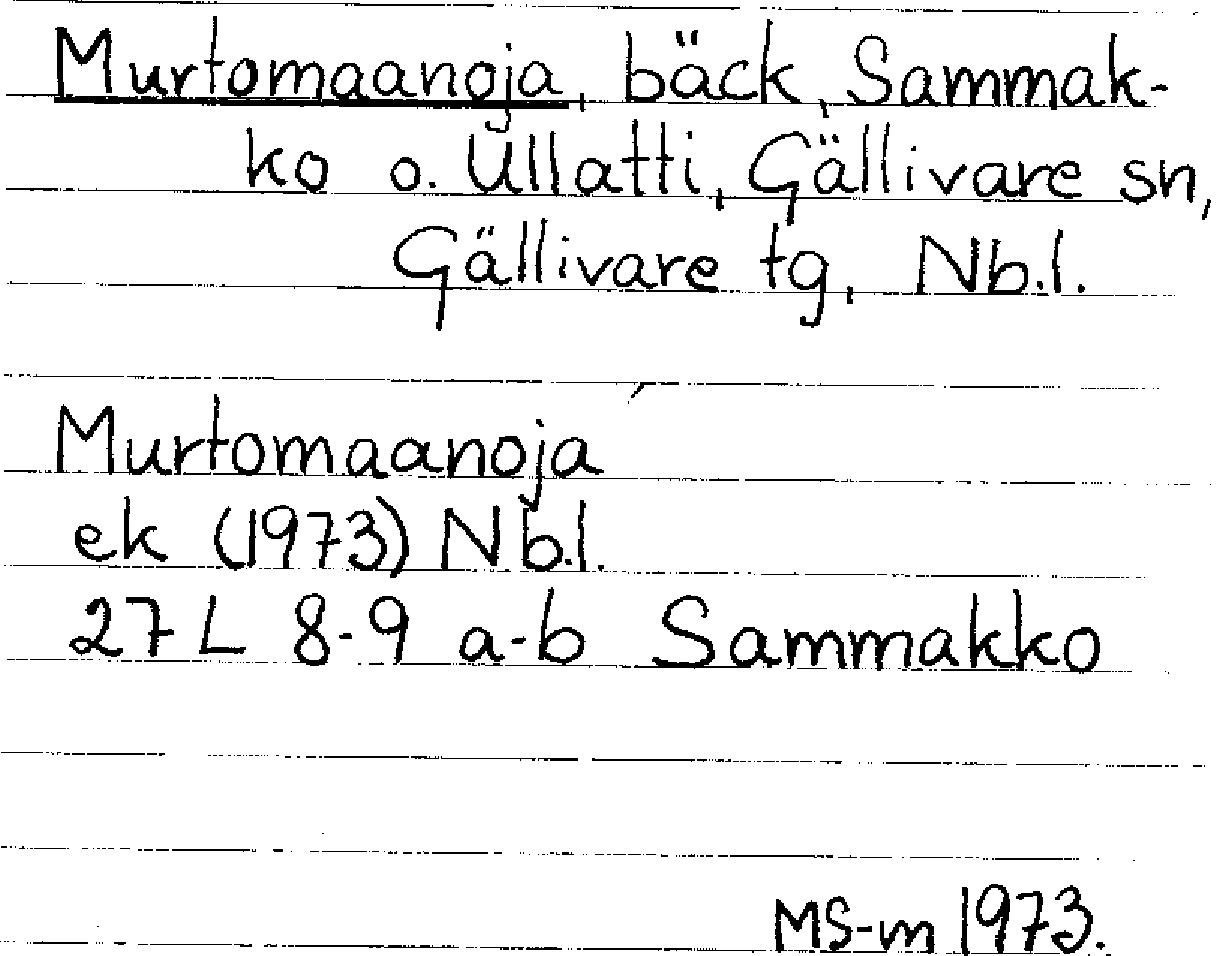 Murtomaanoja, bäck, Sammak-
ko o. Ullatti, Gällivare sn,
Gällivare tg, Nb.l.
Murtomaanoja
ek (1973) Nb.l.
27 L 8-9 a-b Sammakko
MS-m 1973.